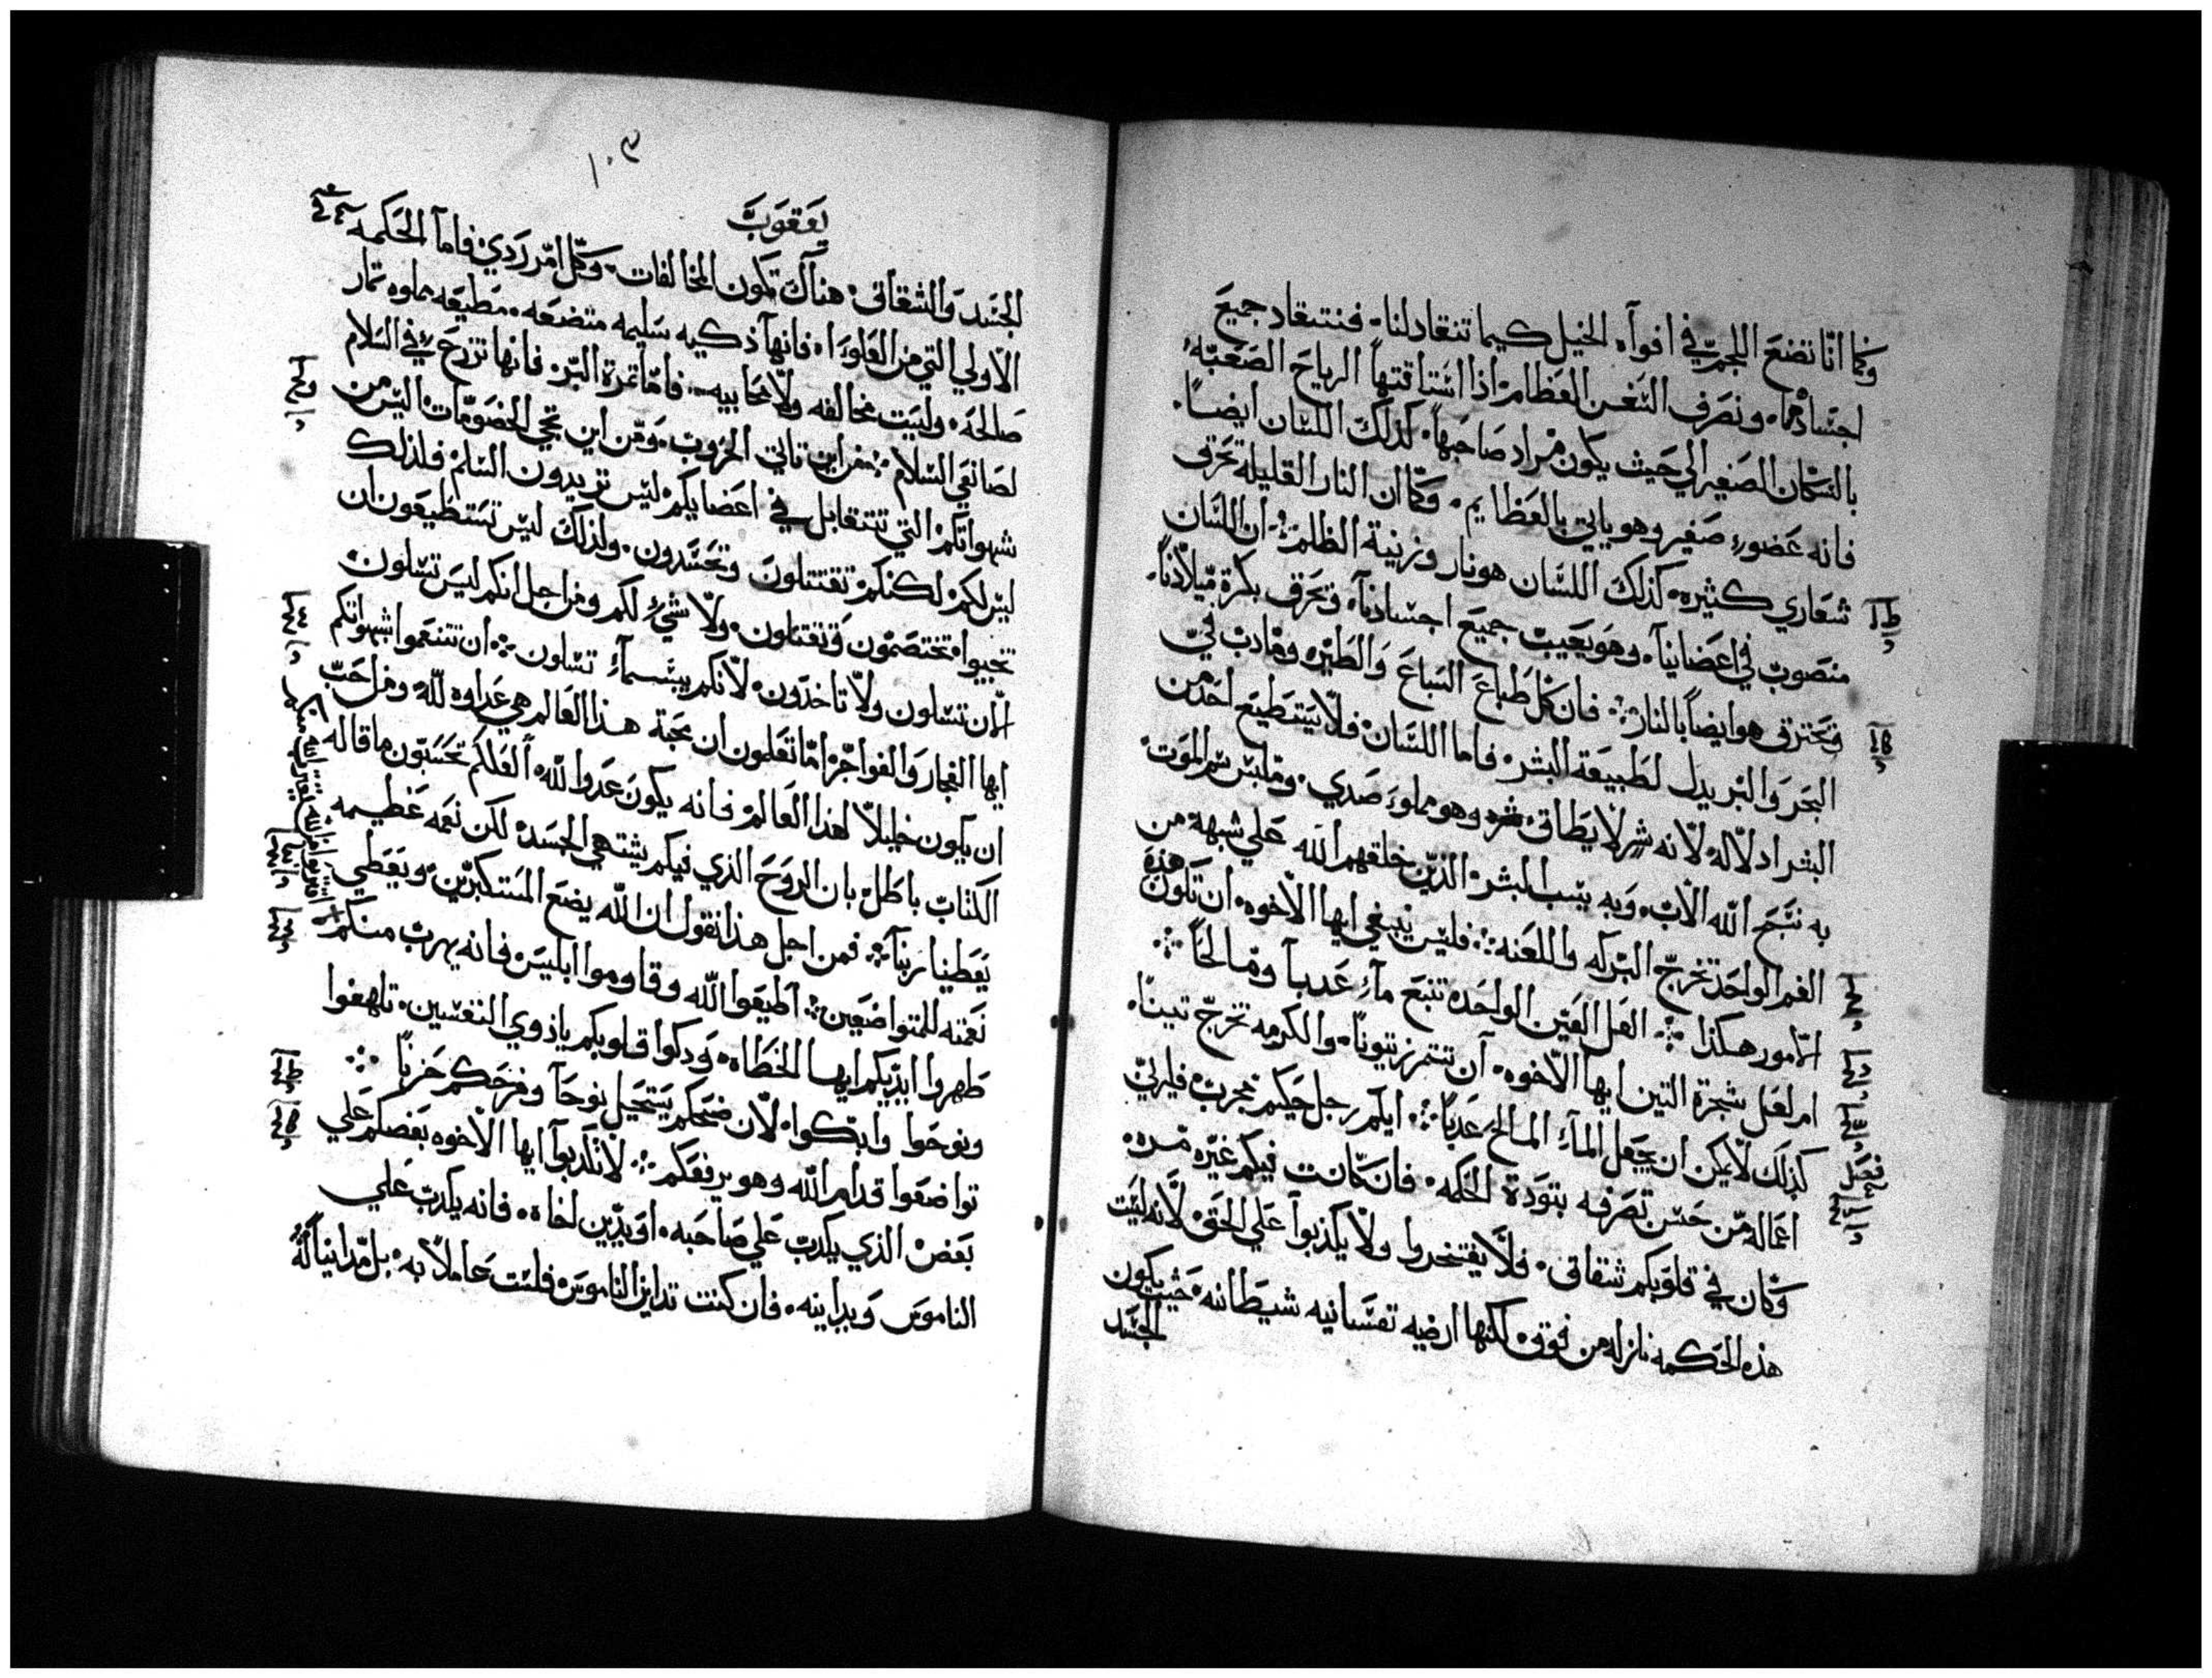 وكما انّا نضع اللجم في افواه الخيل كيما تنقاد لنا، فتنقاد جميع
اجسادهما، ونصرف السفن العظام اذا استاقتها الرياح الصعبه
بالسكان الصغير الي حيث يكون مراد صاحبها، كذلك اللسان ايضاً
فانه عضوء صغير وهو ياتي بالعظايم، وكما ان النار القليله تحرق
شعاري كثيره، كذلك اللسان هو نار وزينية الظلم ان اللسان
منصوب في اعضاينا، وهو يعيب جميع اجسادنا، وتحرق بكرة ميلادنا،
وتحترق هو ايضاً بالنار فان كل طباع السباع والطير، ومادب في
البحر والبر يدل لطبيعة البشر فاما اللسان فلا يستطيع احد من
البشر ادلاله لانه شر لا يطاق وهو مملوء صدي، وملبس سم الموت
به نسبح الله الاب، وبه نسب البشر الذين خلقهم الله علي شبهه من
الفم الواحد تخرج البركه واللعنه فليس ينبغي ايها الاخوه ان تكون هذه
الامور هكذا لعل العين الواحده تنبع مآء عدباً ومالحاً
ام لعل شجرة التين ايها الاخوه، ان تتمر زيتوناً، والكرمه تخرج تيناً،
كذلك لا يمكن ان يجعل المآء المالح عدباً ايكم رجل حكيم مجرب فليري
اعماله من حسن تصرفه بتودة الحكمه، فان كانت فيكم غيره مره،
وكان في قلوبكم شقاق، فلا يفتخروا ولا يكذبوا علي الحق لانه ليست
هذه الحكمه نازله من فوق لكنها ارضيه نفسانيه شيطانيه، حيث يكون
الحسد
١٠٩
يعقوب
الحسد والشقاق، هناك تكون المخالفات، وكل امر ردي، فاما الحكمه
الاولي التي من العلوءا، فانها ذكيه سليمه متضعه، مطيعه مملوه تمار
صالحه، وليست مخالفه ولا محابيه فاما تمرة البر فانها تزرع في السلام
لصانعي السلام من اين تاتي الحروب، ومن اين تجي الخصومات اليس من
شهواتكم التي تتقابل في اعضايكم ليس تريدون السلم فلذلك
ليس لكم لكنكم تقتتلون وتحسدون، ولذلك ليس تستطيعون ان
تجيبوا، تختصمون وتقتتلون، ولا شيء لكم ومن اجل انكم ليس تسلون
الان تسلون ولا تاخدون، لانكم بيسمآء تسلون ان تتنعموا بشهواتكم
ايها الفجار والفواجر اما تعلمون ان محبة هذا العالم هي عداوه لله ومن احب
ان يكون خليلاً لهذا العالم فانه يكون عدوا لله افلاكم تحسبون ما قاله
الكتاب باطل بان الروح الذي فيكم يشتهي الحسد لكن نعمه عظيمه
يعطينا ربنا فمن اجل هذا نقول ان الله يضع المستكبرين ويعطي
نعمته للمتواضعين اطيعوا الله وقاوموا ابليس فانه يهرب منكم
+ اقتربوا من الله ليقترب الله منكم
طهروا ايديكم ايها الخطاه، ودكوا قلوبكم يا ذوي النفسين، تلهفوا
ونوحوا وابكوا، لان ضحكم يستحيل نوحاً وفرحكم حزناً
تواضعوا قدام الله وهو يرفعكم لا تكدبوا ايها الاخوه بعضكم علي
بعض الذي يكدب علي صاحبه، او يدين لخاه، فانه يكدب علي
الناموس ويداينه، فان كنت تداين الناموس فلست عاملاً به، بل مداينا له